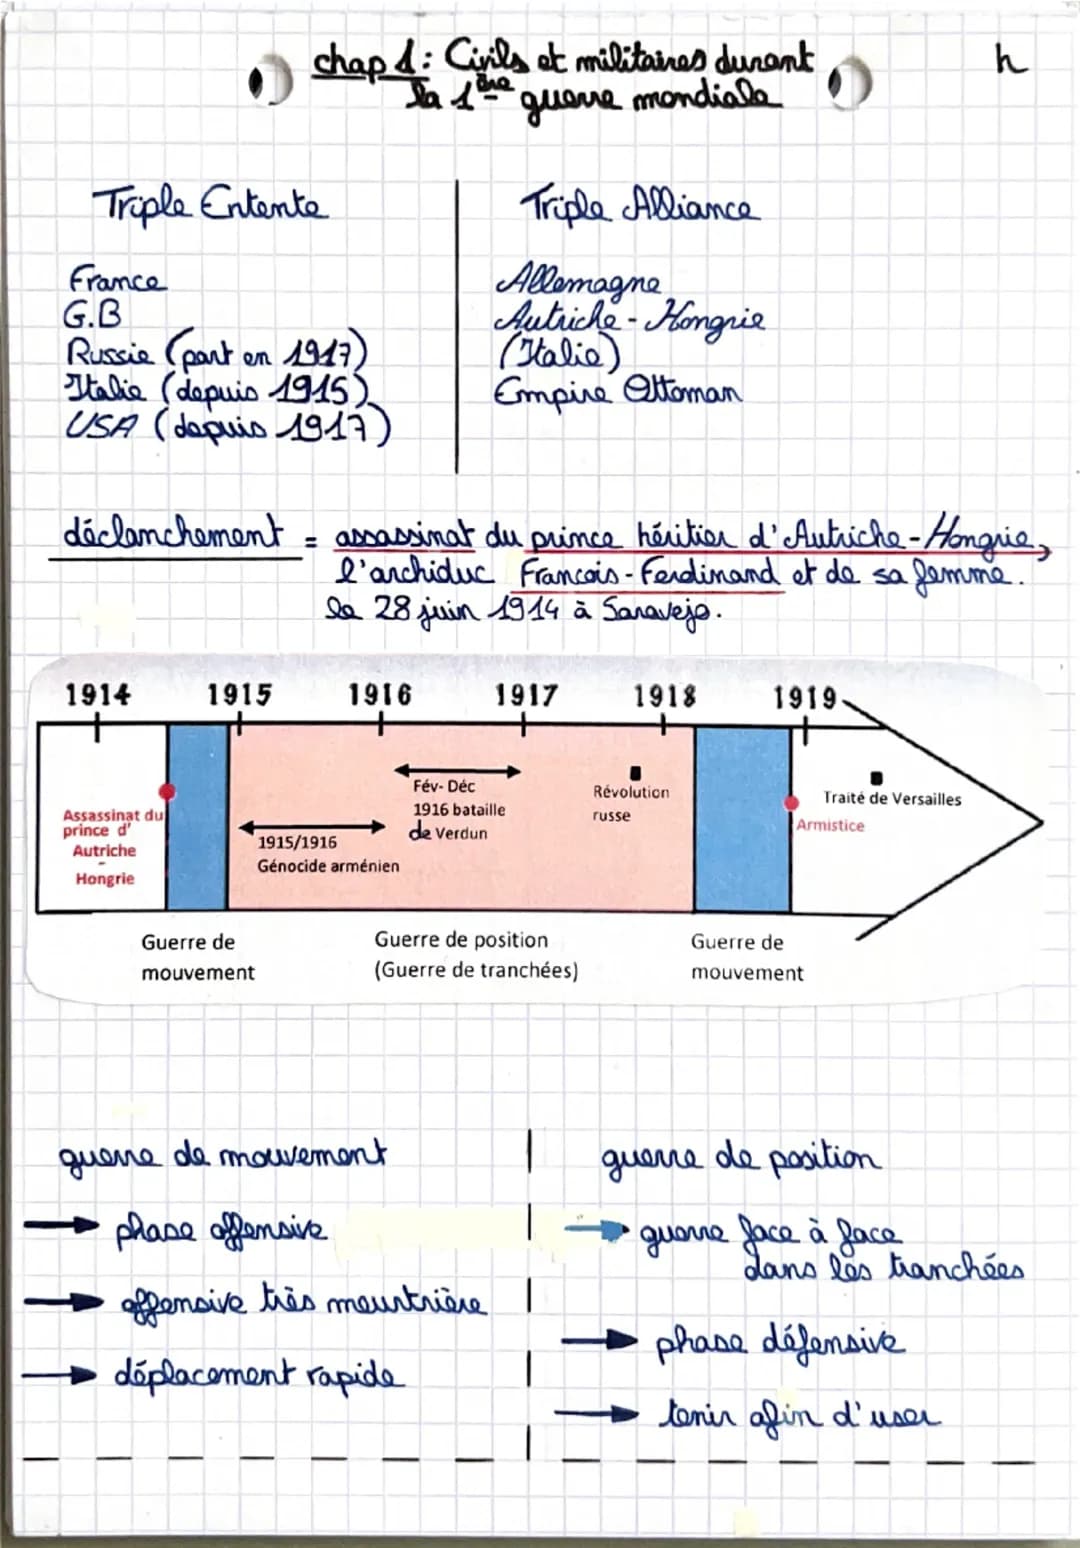 chap 1: Civils et militaires durant
la 1ère guerre mondiale
h
Triple Entente
France
G.B
Russie (part en 1917)
Italie (depuis 1915)
USA (depuis 1917)
Triple Alliance
Allemagne
Autriche-Hongrie
(Italie)
Empire Ottoman
déclanchement = assassinat du prince héritier d'Autriche-Hongrie,
l'archiduc François-Ferdinand et de sa femme.
le 28 juin 1914 à Saravejo.
1914 1915 1916 1917 1918 1919
Assassinat du
prince d'
Autriche
-
Hongrie
1915/1916
Génocide arménien
Fév- Déc
1916 bataille
de Verdun
Révolution
russe
Armistice
Traité de Versailles
Guerre de
mouvement
Guerre de position
(Guerre de tranchées)
Guerre de
mouvement
guerre de mouvement
phase offensive
offensive très meurtrière
déplacement rapide
guerre de position
guerre face à face
dans les tranchées
phase défensive
tenir afin d'user